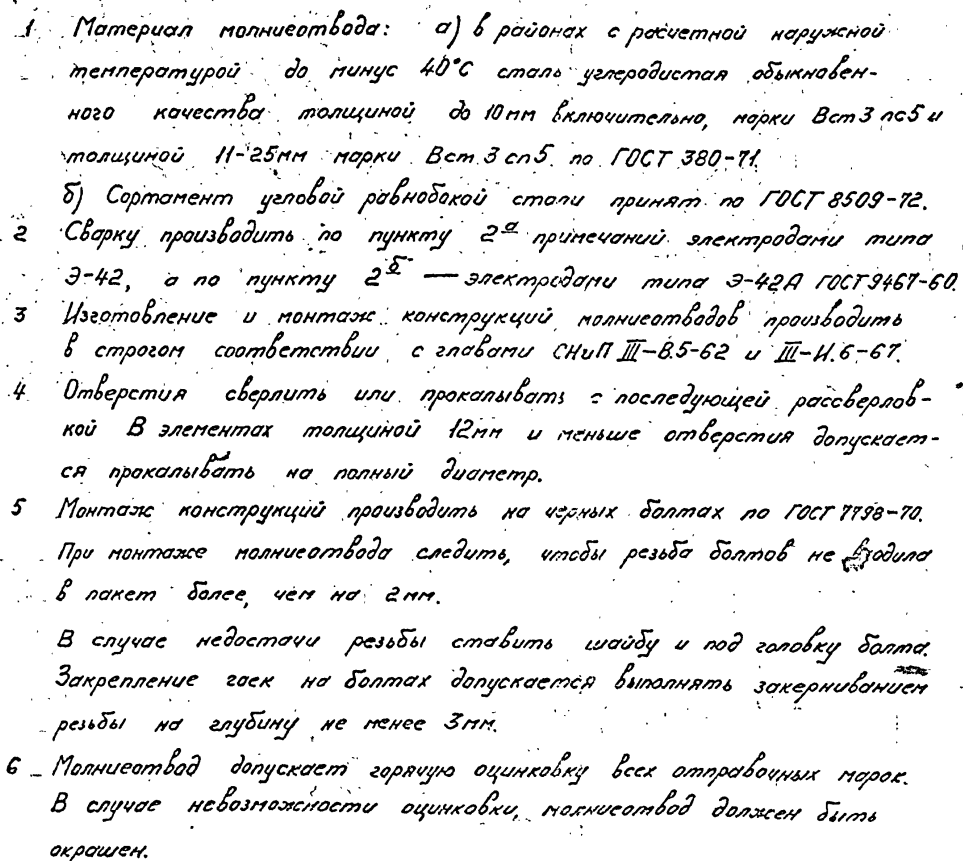 1. Материал молниеотвода: а) в районах с расчетной наружной
температурой до минус 40°С сталь углеродистая обыкновен-
ного качества толщиной до 10мм включительно, марки Вст3пс5 и
толщиной 11-25мм марки Вст.3сп5. по ГОСТ 380-71.
б) Сортамент угловой равнобокой стали принят по ГОСТ 8509-72.
2 Сварку производить по пункту 2а примечаний электродами типа
Э-42, а по пункту 2б — электродами типа Э-42А ГОСТ9467-60.
3 Изготовление и монтаж конструкций молниеотводов производить
в строгом соответствии с главами СНиП III-В.5-62 и III-И.6-67.
4 Отверстия сверлить или прокалывать с последующей рассверлов-
кой В элементах толщиной 12мм и меньше отверстия допускает-
ся прокалывать на полный диаметр.
5 Монтаж конструкций производить на черных болтах по ГОСТ 7798-70.
При монтаже молниеотвода следить, чтобы резьба болтов не входила
в пакет более, чем на 2мм.
В случае недостачи резьбы ставить шайбу и под головку болта.
Закрепление гаек на болтах допускается выполнять закерниванием
резьбы на глубину не менее 3мм.
6 Молниеотвод допускает горячую оцинковку всех отправочных марок.
В случае невозможности оцинковки, молниеотвод должен быть
окрашен.